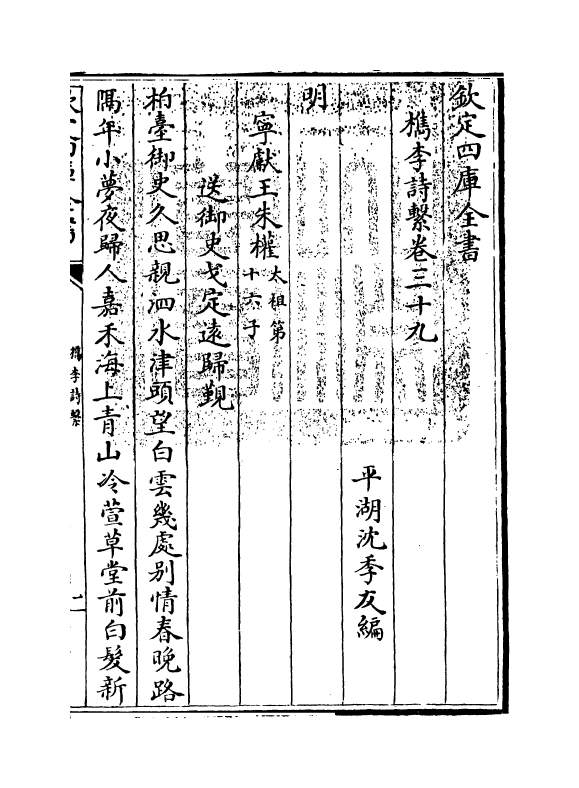 欽定四庫全書
檇李詩繫卷三十九
平湖沈季友編
明
寧獻王朱權太祖第十六子
送御史戈定遠歸覲
柏臺御史久思親泗水津頭望白雲幾處别情春晚路
隔年小夢夜歸人嘉禾海上青山冷萱草堂前白髮新
檇李詩繫